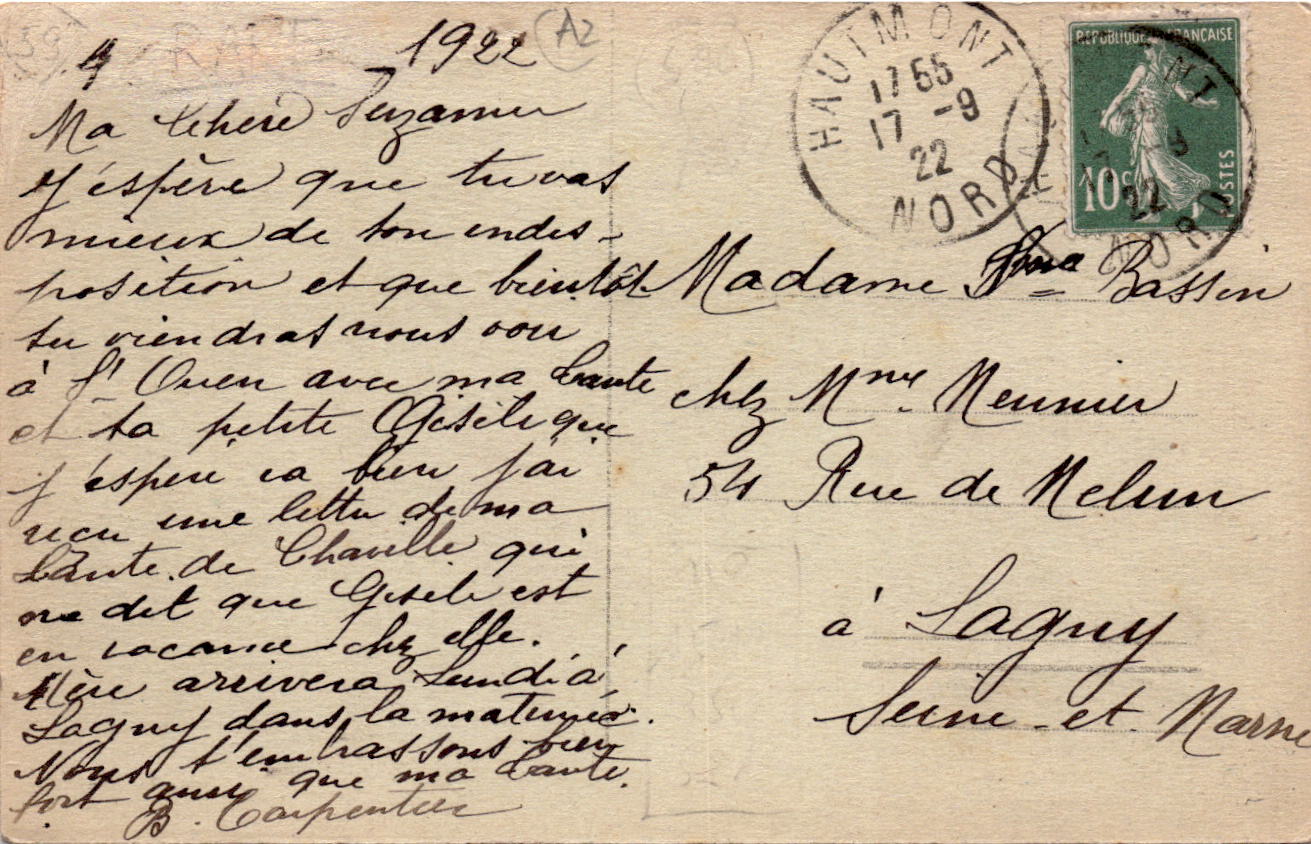 1922
A2
Ma Chère Suzanne
J'espère que tu vas
mieux de ton endis-
position et que bientôt
tu viendras nous voir
à St Ouen avec ma tante
et ta petite Gisèle que
j'espère va bien j'ai
reçu une lettre de ma
tante de Chaville qui
me dit que Gisèle est
en vacance chez elle.
Mère arrivera Lundi à
Lagny dans la matinée.
Nous t'embrassons bien
fort ainsi que ma tante.
B. Carpentier
HAUTMONT
17 55
17 -9
22
NORD
REPUBLIQUE FRANÇAISE
10c
POSTES
17 -9
22
NORD
Madame Bassin
chez Mme Meunier
54 Rue de Melun
à Lagny
Seine-et-Marne